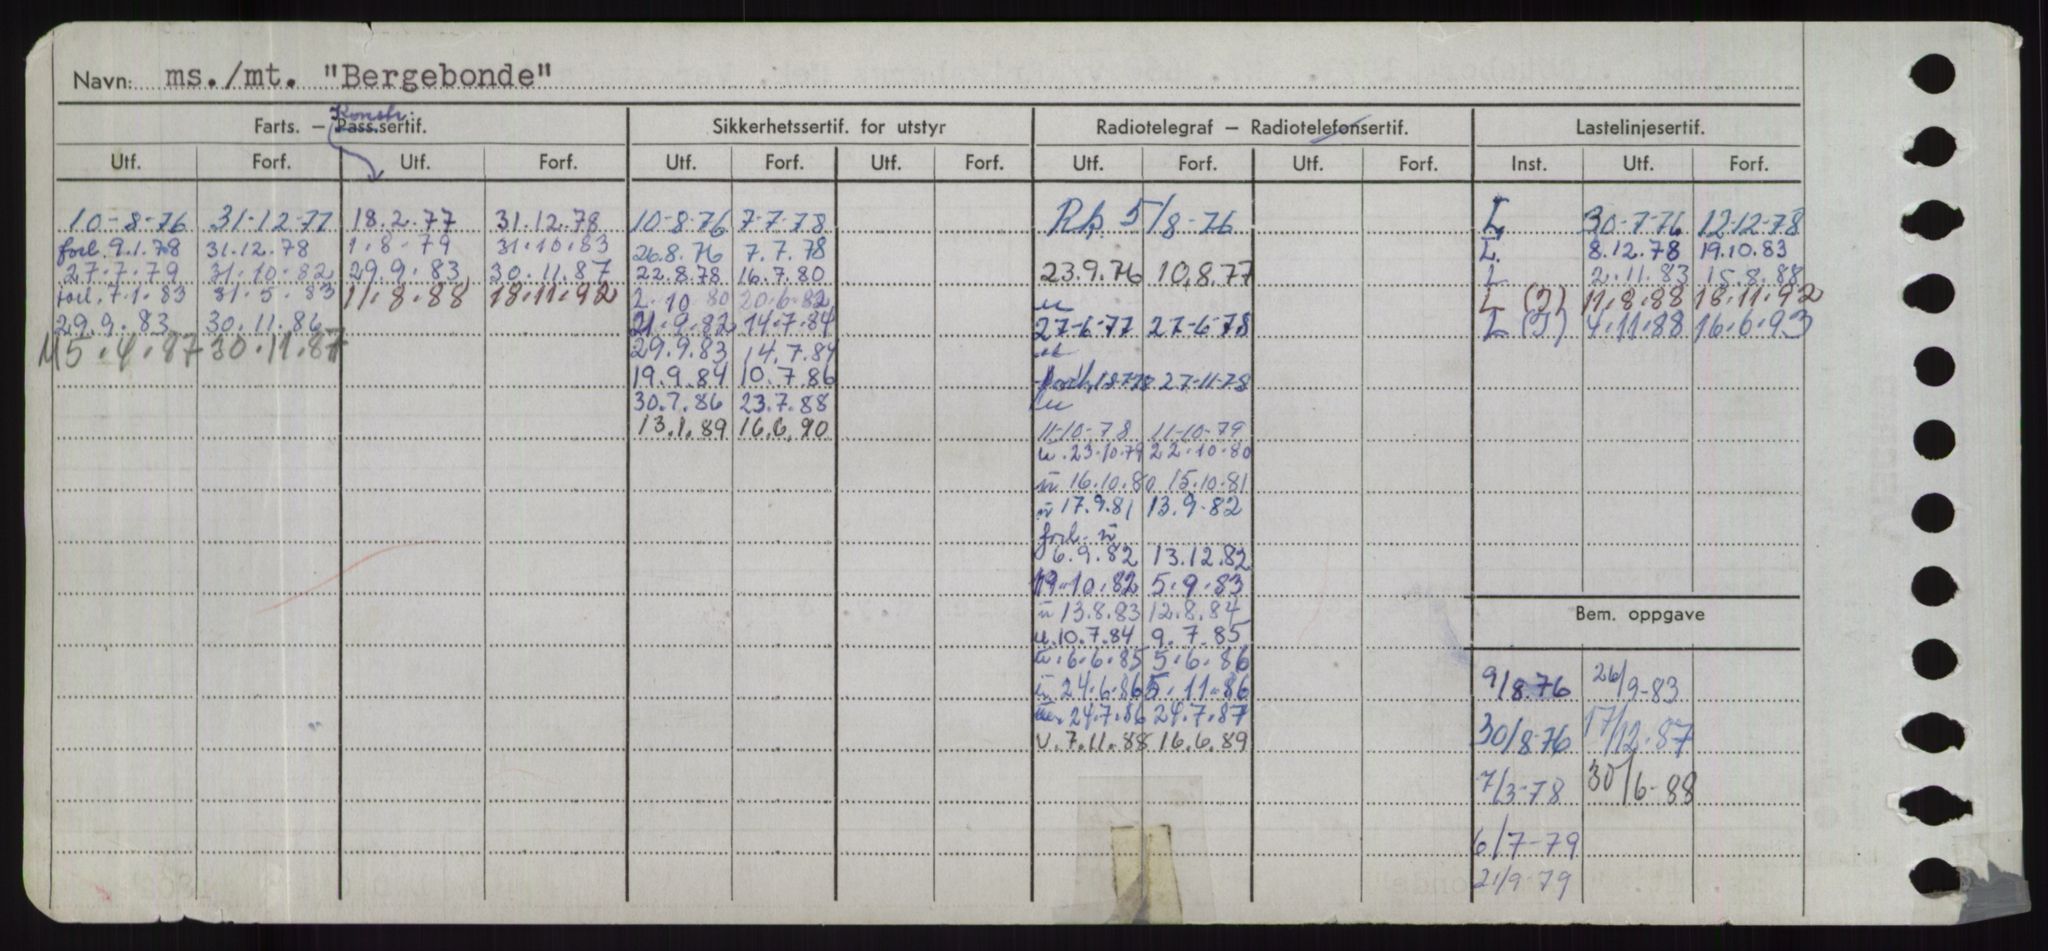 Navn: ms./mt. "Bergebonde"
Konstr.
Farts. — Pass.sertif. Sikkerhetssertif. for utstyr Radiotelegraf — Radiotelefonsertif. Lastelinjesertif.
Utf. Forf. Utf. Forf. Utf. Forf. Utf. Forf. Utf. Forf. Utf. Forf. Inst. Utf. Forf.
10-8-76 31-12-77 18.2.77 31.12.78 10-8-76 7-7-78 5/8-76 L 30-7-76 12-12-78
forl. 9.1.78 31.12.78 1.8-79 31.10.83 26.8.76 7.7.78 L. 8.12.78 19.10.83
27.7.79 31.10.82 29.9.83 30.11.87 22.8.78 16.7.80 23.9.76 10.8.77 L 2.11.83 15.8.88
forl. 7.1.83 31.5.83 11.8.88 18.11.92 2.10 80 20.6.82 L (J) 11.8.88 18.11.92
29.9.83 30.11.86 21.9.82 14.7.84 27-6-77 27-6-78 L (J) 4.11.88 16.6.93
15.4.87 30.11.87 29.9.83 14.7.84
19.9.84 10.7.86 forl. 18-7-78 27-11-78
30.7.86 23.7.88
13.1.89 16.6.90 11-10-78 11-10-79
u. 23.10.79 22.10.80
u 16.10.80 15.10.81
u 17.9.81 13.9.82
forl. u
6.9.82 13.12.82
19.10.82 5.9.83
u 13.8.83 12.8.84
Bem. oppgave
u. 10.7.84 9.7.85
u. 6.6.85 5.6.86
u 24.6.86 5.11.86 9/8.76 26/9-83
24.7.86 24.7.87 30/8-76 17/12-87
u. 7.11.88 16.6.89
7/3-78 30/6-88
6/7-79
21/9-79